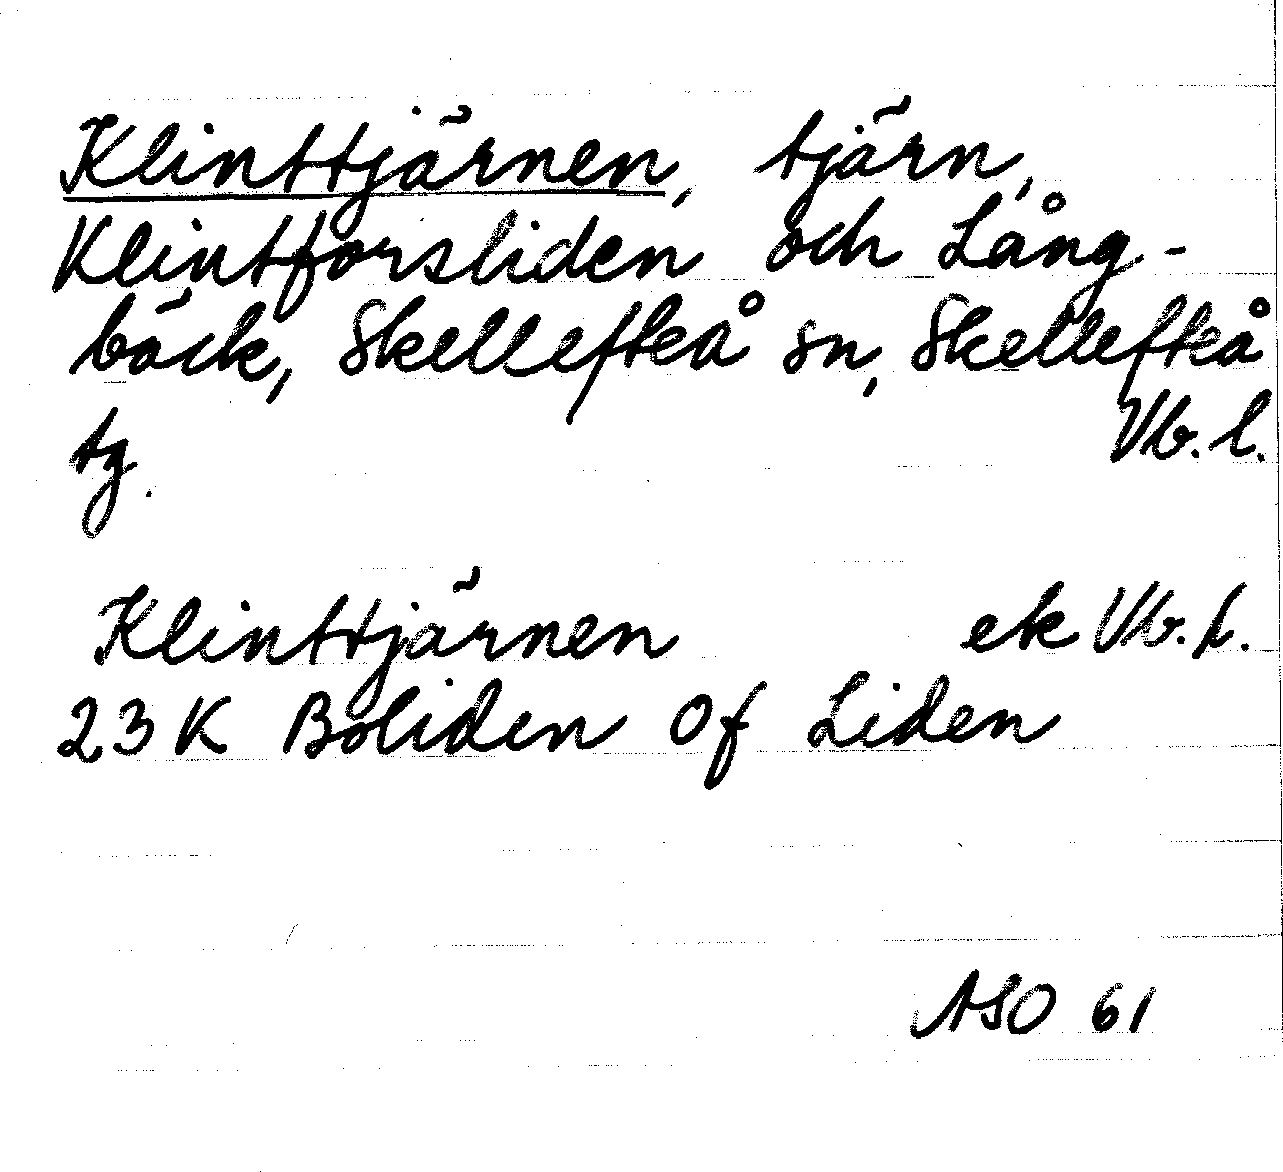 Klinttjärnen, tjärn,
Klintforsliden och Lång-
bäck, Skellefteå sn, Skellefteå
tg. Vb. l.
Klinttjärnen ek Vb. l.
23 K Boliden Of Liden
ASO 61